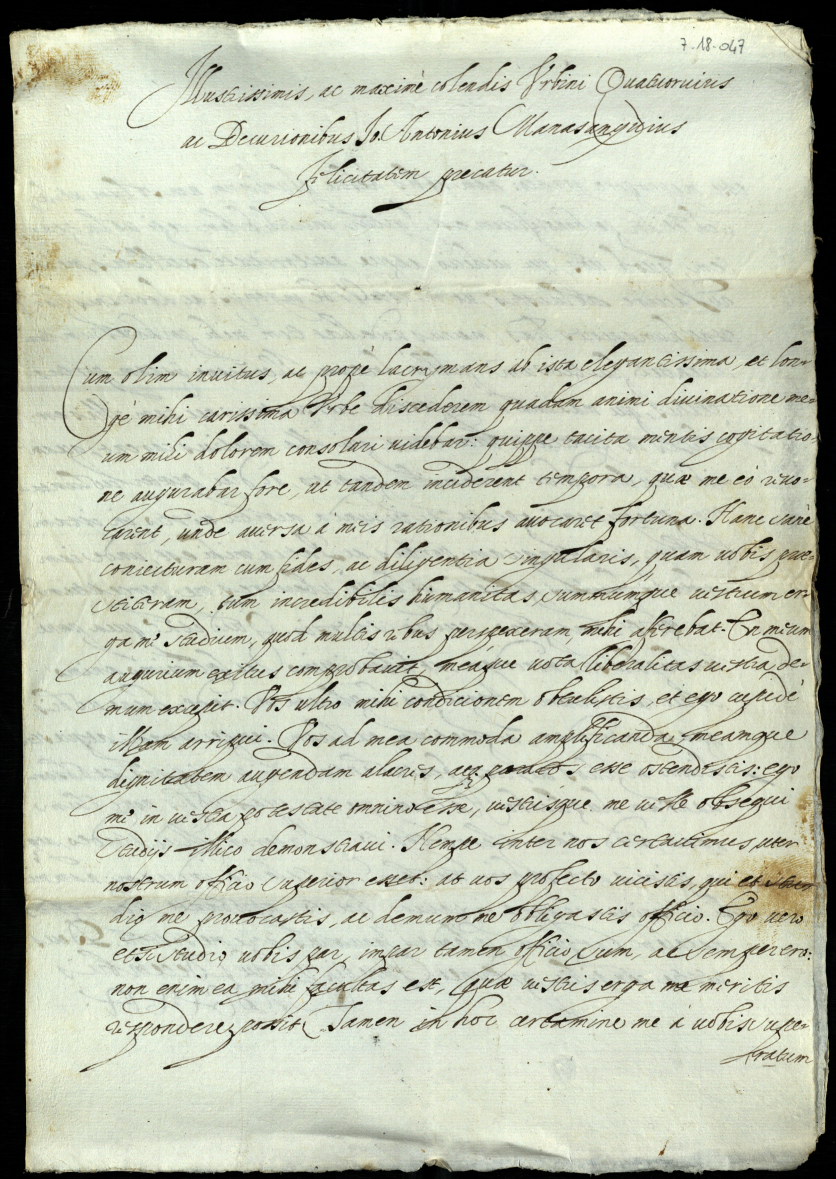 7-18-047
Illustrissimis, ac maximè colendis Vrbini Quatuoruiris
ac Decurionibus Io. Antonius Manasanguius
Felicitatem precatur.
Cum olim inuitus, ac propè lacrymans ab ista elegantissima, et lon-
gè mihi carissima Vrbe discederem quadam animi diuinatione me-
um mihi dolorem consolari uidebar: quippe tacita mentis cogitatio-
ne augurabar fore, ut tandem inciderent tempora, quæ me eò reuo-
carent, unde auersa à meis rationibus auocaret fortuna. Hanc sanè
coniecturam cum fides, ac diligentia singularis, quam uobis præ-
stiteram, tum incredibilis humanitas, summumque uestrum er-
ga me studium, quod multis rebus perspexeram, mihi afferebat. En meum
augurium exitus comprobauit, meaque uota liberalitas uestra de-
mum excepit. Vos ultro mihi condicionem obtulistis, et ego cupidè
illam arripui. Vos ad mea commoda amplificanda, meamque
dignitatem augendam alacres, ac paratos esse ostendistis: ego
me in uestra potestate omnino esse, uestrisque me uelle obsequi
studijs illico demonstraui. Nempe inter nos certauimus, uter
nostrum officio superior esset: at uos profecto uicistis, qui et
me prouocastis, ac demum me obligastis officio. Ego uero
etsi studio uobis par, impar tamen officio sum, ac semper ero:
non enim ea mihi facultas est, quæ uestris erga me meritis
respondere possit. Tamen in hoc certamine me à uobis supe-
ratum